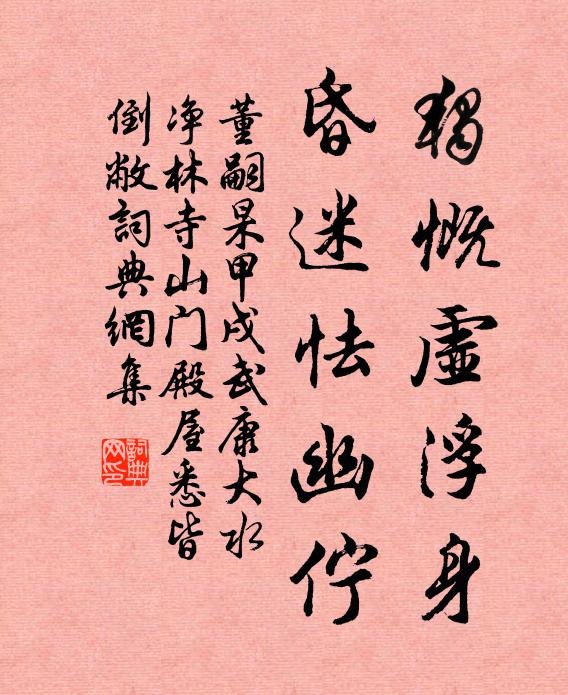 獨慨虛浮身
昏迷怯幽佇
董嗣杲甲戌武康大水
净林寺山门殿屋悉皆
倒敝詞典網集
詞典网印